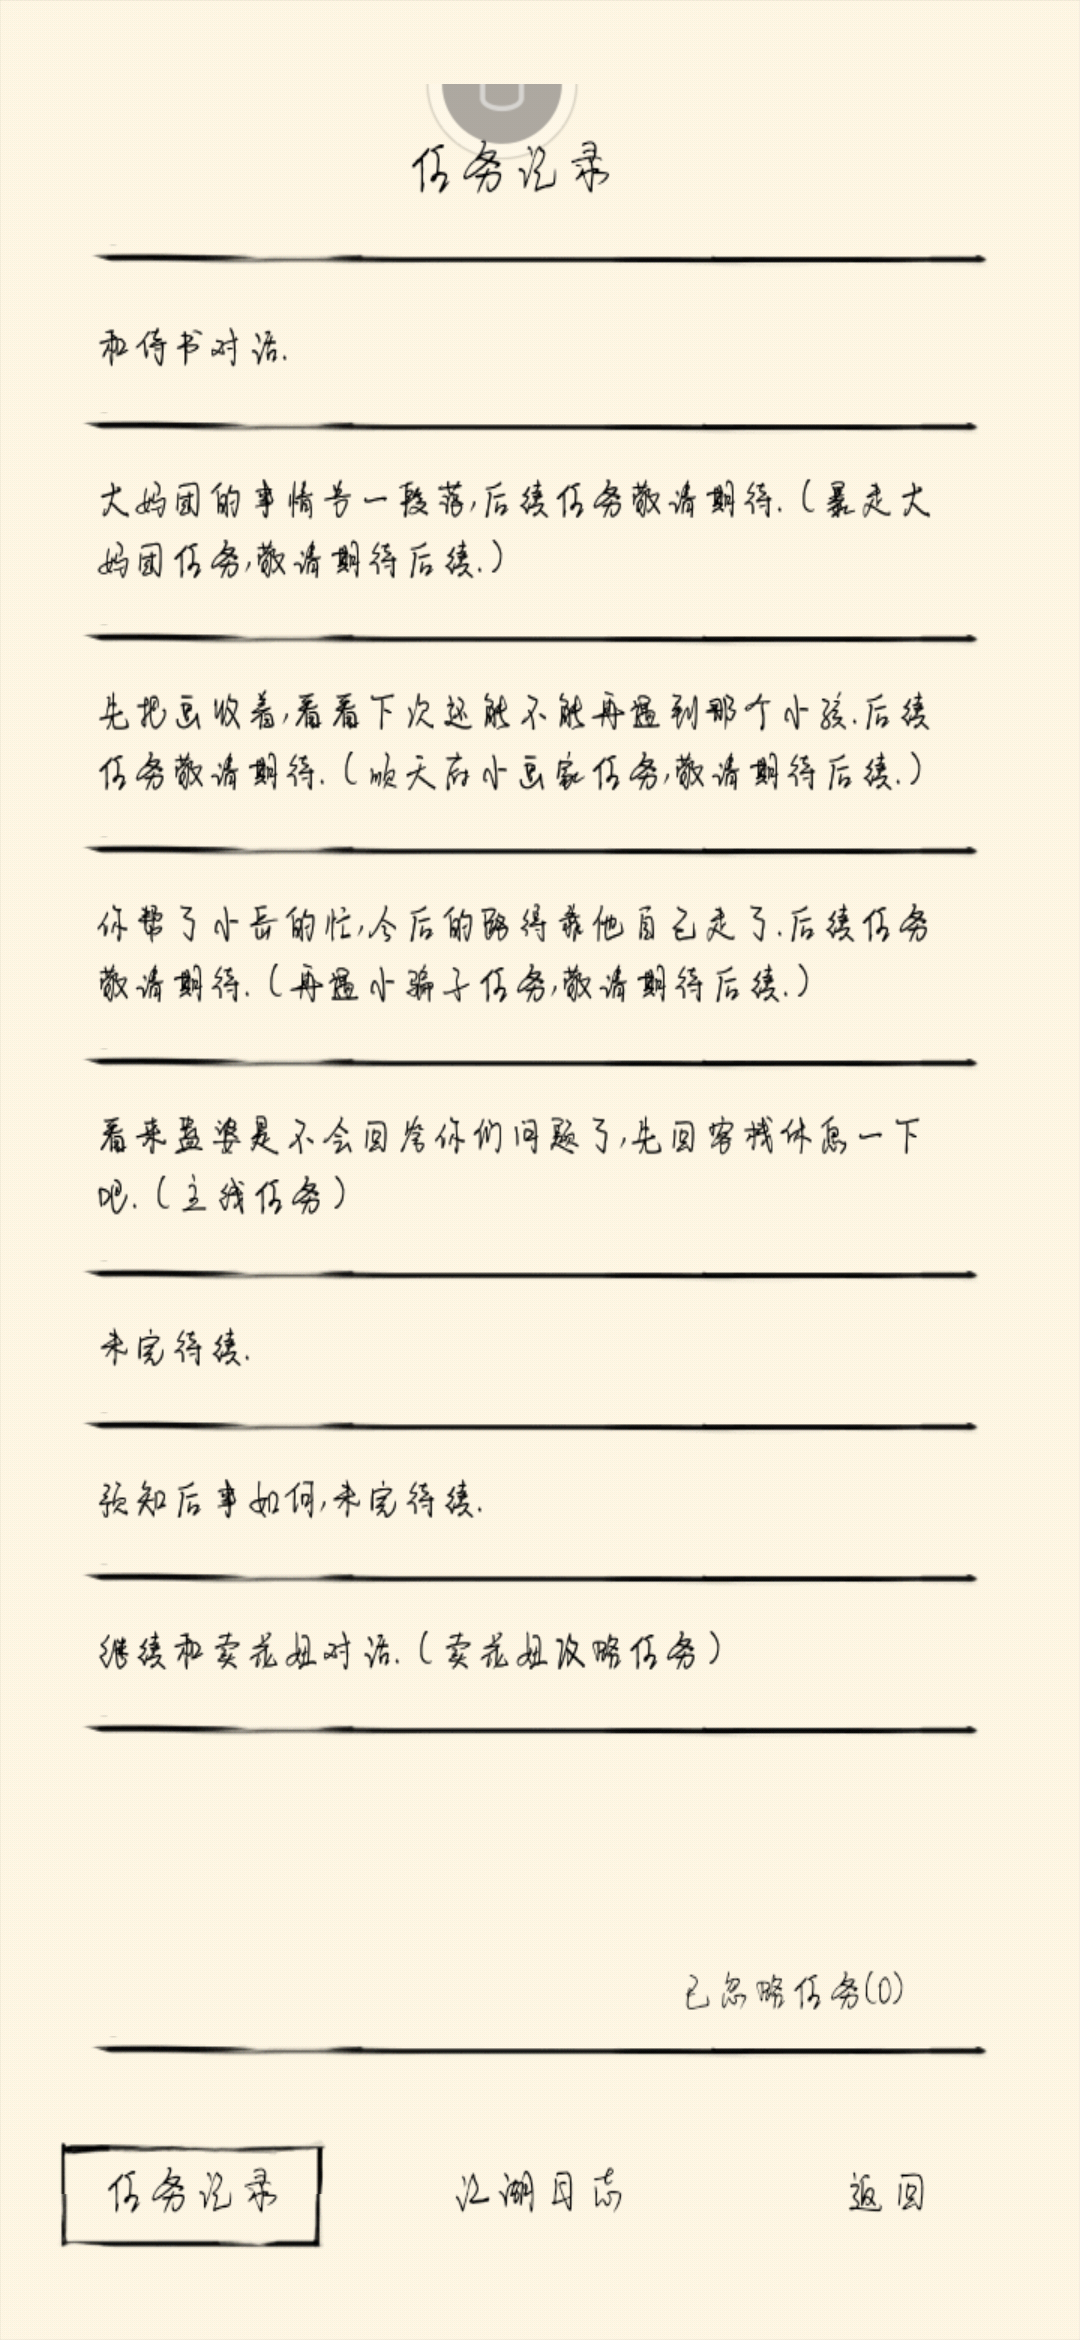 任务记录
和侍书对话.
大妈团的事情告一段落,后续任务敬请期待.(暴走大
妈团任务,敬请期待后续.)
先把画收着,看看下次还能不能再遇到那个小孩.后续
任务敬请期待.(顺天府小画家任务,敬请期待后续.)
你帮了小岳的忙,今后的路得靠他自己走了.后续任务
敬请期待.(再遇小骗子任务,敬请期待后续.)
看来孟婆是不会回答你们问题了,先回客栈休息一下
吧.(主线任务)
未完待续.
预知后事如何,未完待续.
继续和卖花妞对话.(卖花妞攻略任务)
已忽略任务(0)
任务记录 江湖日志 返回